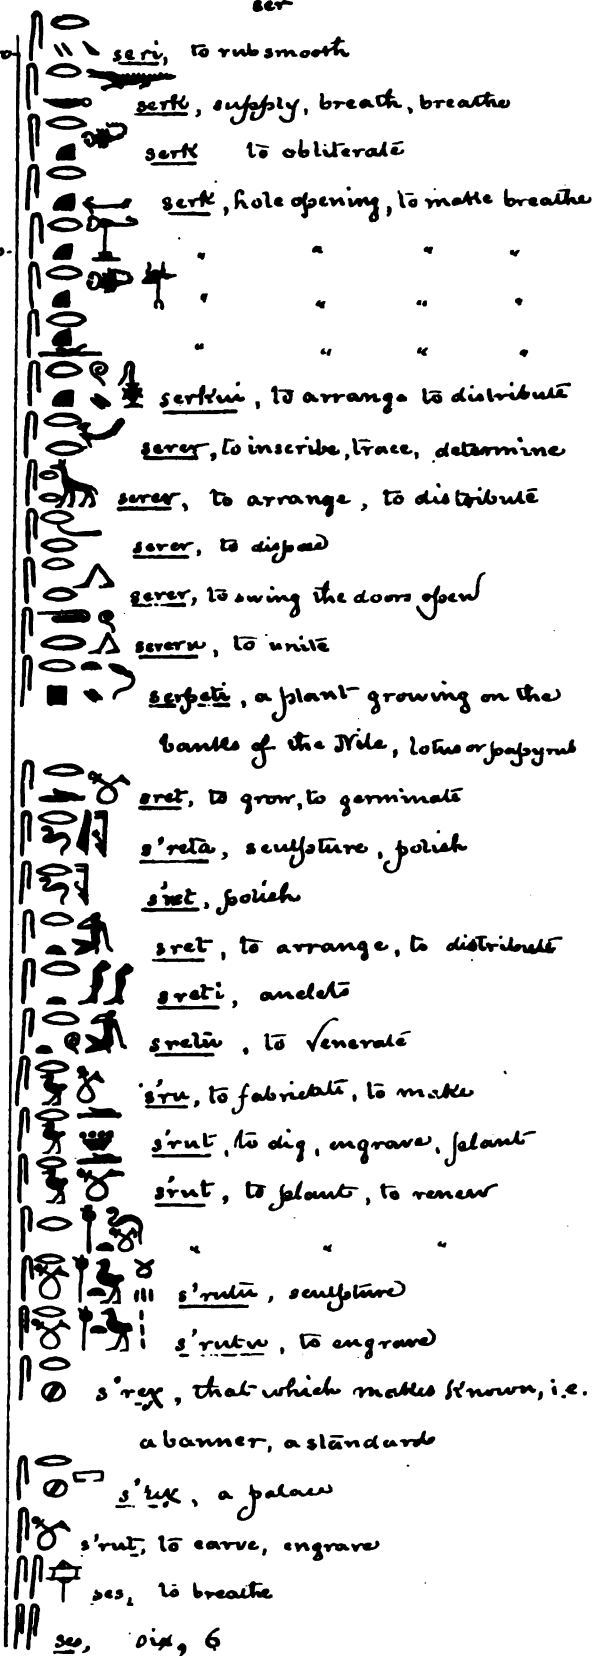 ser
seri, to rub smooth
serk, supply, breath, breathe
serk to obliterate
serk, hole opening, to make breathe
" " " "
" " " "
" " " "
serkui, to arrange to distribute
serer, to inscribe, trace, determine
serer, to arrange, to distribute
serer, to dispose
serer, to swing the doors open
sereru, to unite
serpeti, a plant growing on the
banks of the Nile, lotus or papyrus
sret, to grow, to germinate
s'reta, sculpture, polish
s'ret, polish
sret, to arrange, to distribute
sreti,
sretu, to venerate
s'ru, to fabricate, to make
s'rut, to dig, engrave, plant
s'rut, to plant, to renew
" " "
s'rutu, sculpture
s'rutu, to engrave
s'reχ, that which makes known, i.e.
a banner, a standard
s'reχ, a palace
s'rut, to carve, engrave
ses, to breathe
ses, six, 6